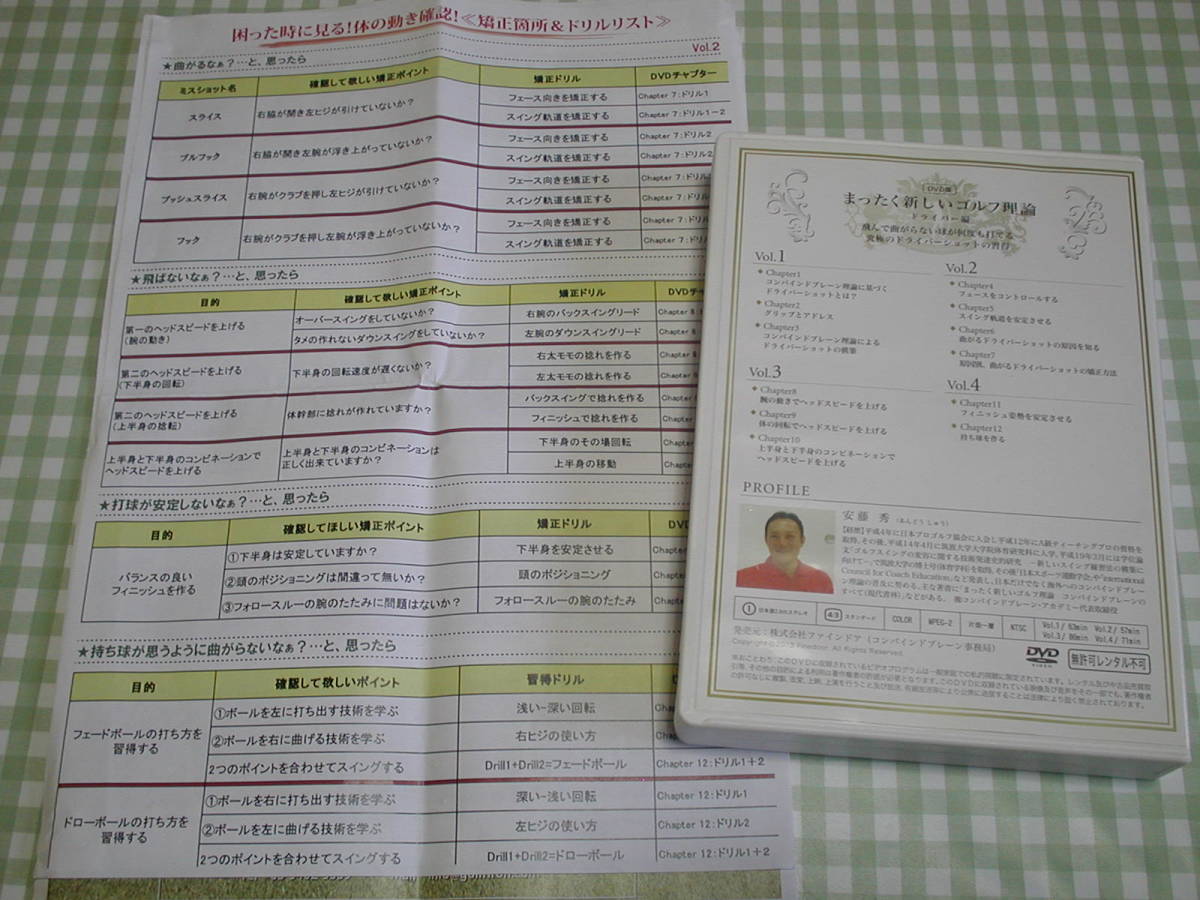 困った時に見る!体の動き確認!≪矯正箇所&ドリルリスト≫
Vol.2
★曲がるなぁ?…と、思ったら
ミスショット名 確認して欲しい矯正ポイント 矯正ドリル DVDチャプター
スライス 右脇が開き左ヒジが引けていないか? フェース向きを矯正する Chapter 7:ドリル1
スイング軌道を矯正する Chapter 7:ドリル1-2
プルフック 右脇が開き左腕が浮き上がっていないか? フェース向きを矯正する Chapter 7:ドリル2
スイング軌道を矯正する Chapter 7:ドリル2
プッシュスライス 右腕がクラブを押し左ヒジが引けていないか? フェース向きを矯正する Chapter 7:ドリル
スイング軌道を矯正する Chapter 7:ドリル
フック 右腕がクラブを押し左腕が浮き上がっていないか? フェース向きを矯正する Chapter 7:ドリ
スイング軌道を矯正する Chapter 7:ドリ
★飛ばないなぁ?…と、思ったら
目的 確認して欲しい矯正ポイント 矯正ドリル DVDチ
第一のヘッドスピードを上げる
(腕の動き)
オーバースイングをしていないか? 右腕のバックスイングリード Chapter 8
タメの作れないダウンスイングをしていないか? 左腕のダウンスイングリード Chapter 8
第二のヘッドスピードを上げる
(下半身の回転)
下半身の回転速度が遅くないか? 右太モモの捻れを作る Chapter
左太モモの捻れを作る Chapter
第二のヘッドスピードを上げる
(上半身の捻転)
体幹部に捻れが作れていますか? バックスイングで捻れを作る Chapter
フィニッシュで捻れを作る Chapter
上半身と下半身のコンビネーションで
ヘッドスピードを上げる
上半身と下半身のコンビネーションは
正しく出来ていますか?
下半身のその場回転 Chapter
上半身の移動 Chap
★打球が安定しないなぁ?…と、思ったら
目的 確認してほしい矯正ポイント 矯正ドリル
バランスの良い
フィニッシュを作る
①下半身は安定していますか? 下半身を安定させる Chapte
②頭のポジショニングは間違って無いか? 頭のポジショニング Chapte
③フォロースルーの腕のたたみに問題はないか? フォロースルーの腕のたたみ Chapte
★持ち球が思うように曲がらないなぁ?…と、思ったら
目的 確認して欲しいポイント 習得ドリル
フェードボールの打ち方を
習得する
①ボールを左に打ち出す技術を学ぶ 浅い-深い回転
②ボールを右に曲げる技術を学ぶ 右ヒジの使い方
2つのポイントを合わせてスイングする Drill1+Drill2=フェードボール Chapter 12:ドリル1+2
ドローボールの打ち方を
習得する
①ボールを右に打ち出す技術を学ぶ 深い-浅い回転 Chapter 12:ドリル1
②ボールを左に曲げる技術を学ぶ 左ヒジの使い方 Chapter 12:ドリル2
2つのポイントを合わせてスイングする Drill1+Drill2=ドローボール Chapter 12:ドリル1+2
まったく新しいゴルフ理論
ドライバー編
飛んで曲がらない球が何度も打てる
究極のドライバーショットの習得
Vol.1
Chapter1
コンバインドプレーン理論に基づく
ドライバーショットとは?
Chapter2
グリップとアドレス
Chapter3
コンバインドプレーン理論による
ドライバーショットの構築
Vol.2
Chapter4
フェースをコントロールする
Chapter5
スイング軌道を安定させる
Chapter6
曲がるドライバーショットの原因を知る
Chapter7
原因別、曲がるドライバーショットの矯正方法
Vol.3
Chapter8
腕の動きでヘッドスピードを上げる
Chapter9
体の回転でヘッドスピードを上げる
Chapter10
上半身と下半身のコンビネーションで
ヘッドスピードを上げる
Vol.4
Chapter11
フィニッシュ姿勢を安定させる
Chapter12
持ち球を作る
PROFILE
安藤 秀 (あんどう しゅう)
【経歴】平成4年に日本プロゴルフ協会に入会し平成12年にA級ティーチングプロの資格を
取得。その後、平成14年4月に筑波大学大学院体育研究科に入学。平成19年3月には学位論
文「ゴルフスイングの変容に関する技術発達史的研究 -新しいスイング練習法の構築に
向けて-」で筑波大学の博士号(体育学)を取得。その後「日本スポーツ運動学会」や「International
Council for Coach Education」など発表し、日本だけでなく海外へのコンバインドプレー
ン理論の普及に努める。主な著書に「まったく新しいゴルフ理論 コンバインドプレーンの
すべて(現代書林)」などがある。㈱コンバインドプレーン・アカデミー代表取締役
① 日本語2.0chステレオ 4:3 スタンダード COLOR MPEG-2 片面一層 NTSC Vol.1/ 63min Vol.2/ 57min
Vol.3/ 86min Vol.4/ 71min
発売元:株式会社ファインドア(コンバインドプレーン事務局)
Copyright©2013 Finedoor. All Rights Reserved.
DVD
VIDEO
無許可レンタル不可